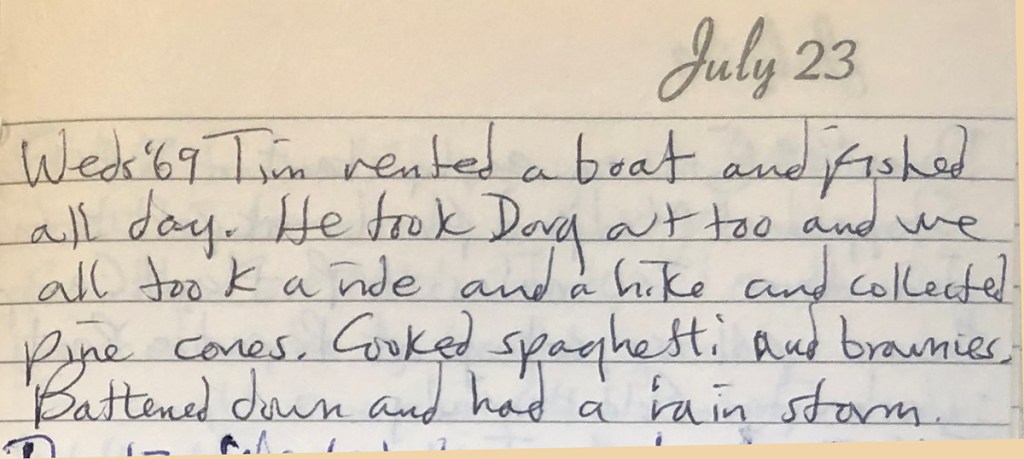 July 23
Weds '69 Tim rented a boat and fished
all day. He took Doug out too and we
all took a ride and a hike and collected
pine cones. Cooked spaghetti and brownies.
Battened down and had a rain storm.